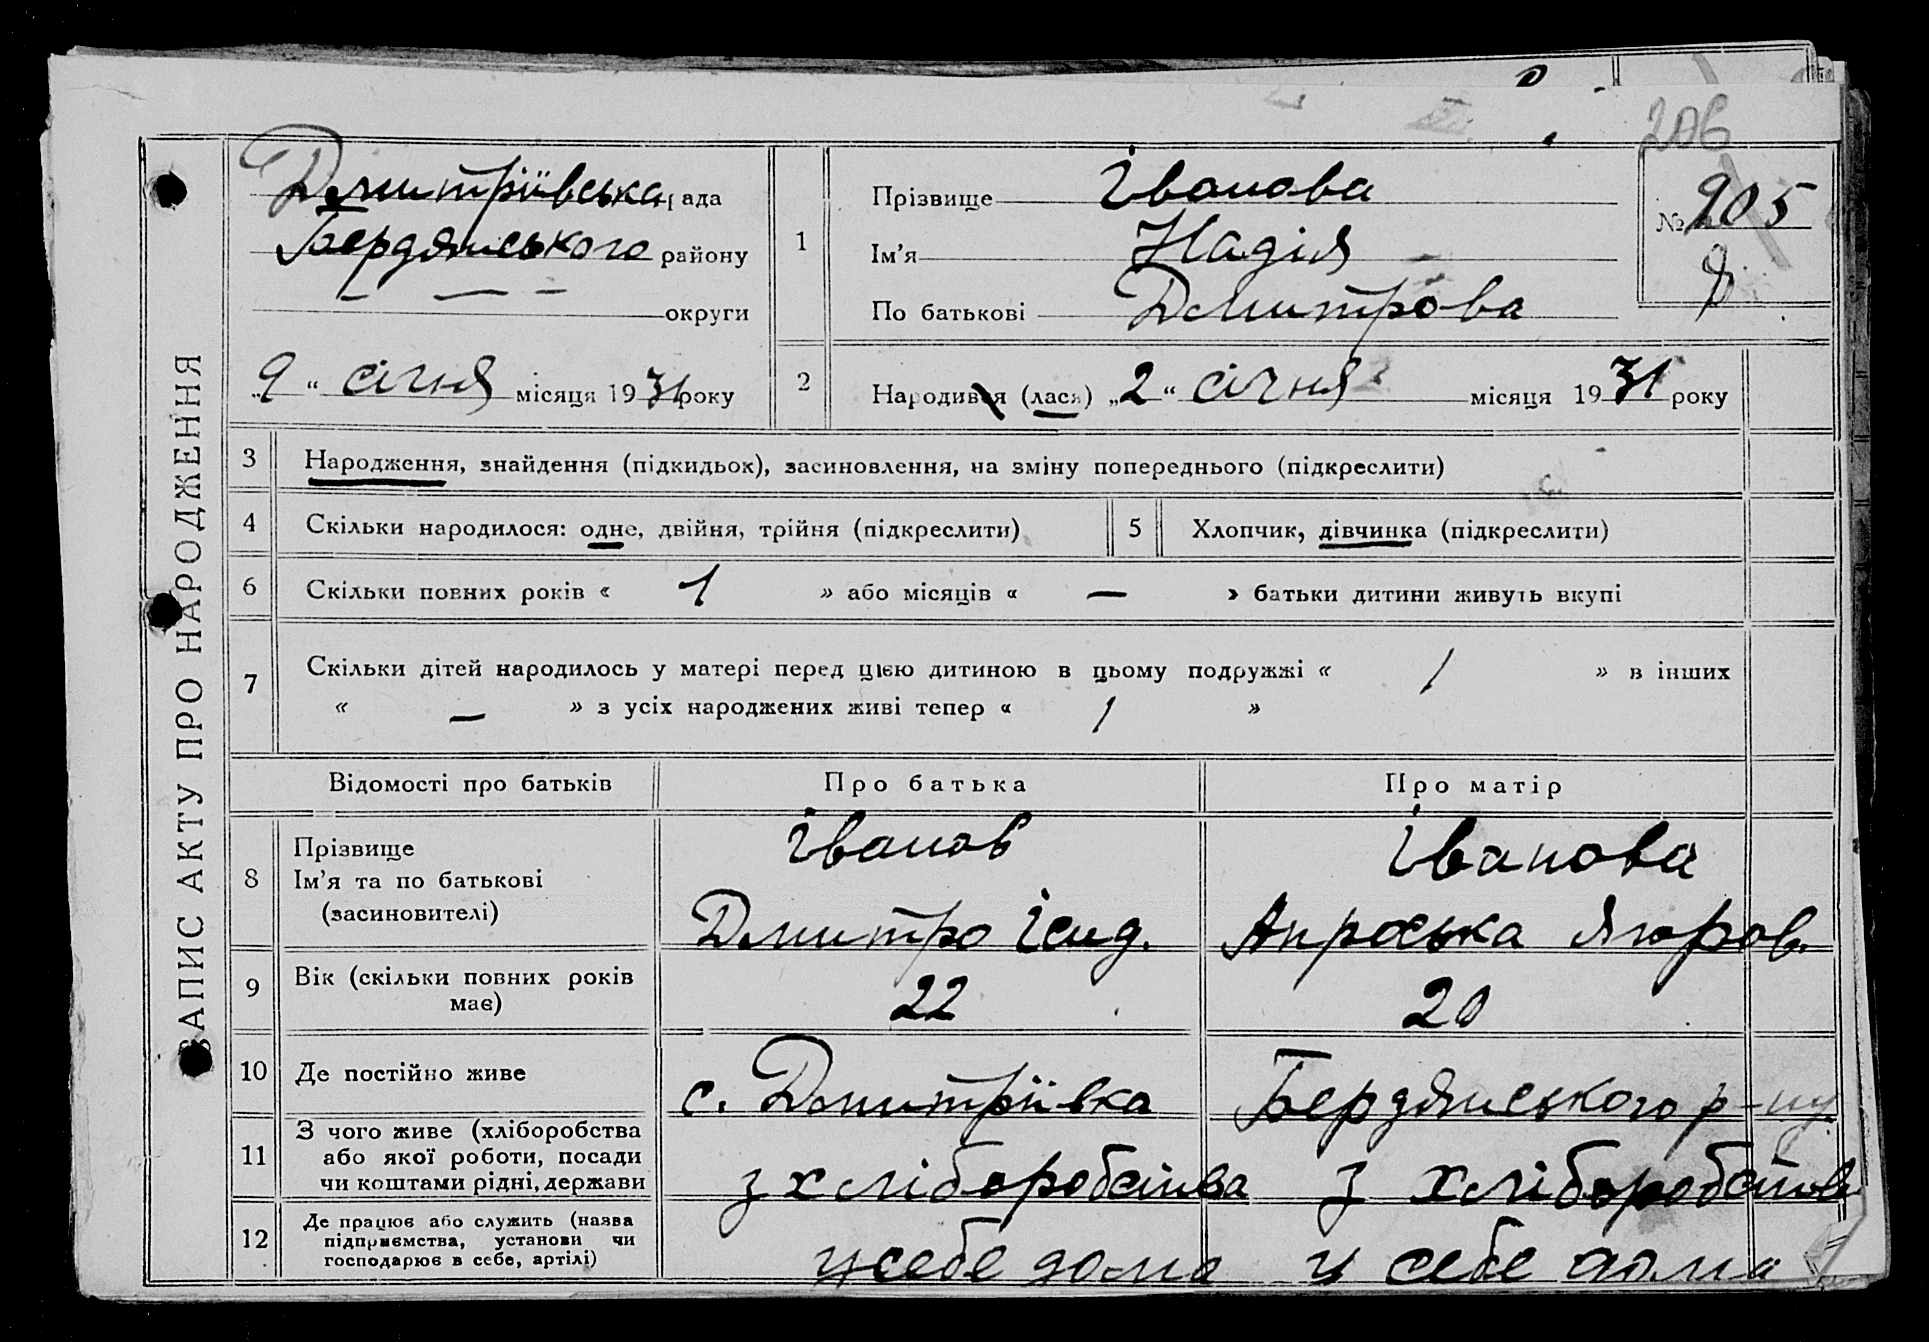 206
ЗАПИС АКТУ ПРО НАРОДЖЕННЯ
Дмитріївська рада
Бердянського району
— — — округи
„9“ січня місяця 1931 року
1
Прізвище Іванова
Ім'я Надія
По батькові Дмитрова
№ 205
2
Народився (лася) „2“ січня місяця 1931 року
3 Народження, знайдення (підкидьок), засиновлення, на зміну попереднього (підкреслити)
4 Скільки народилося: одне, двійня, трійня (підкреслити) 5 Хлопчик, дівчинка (підкреслити)
6 Скільки повних років « 1 » або місяців « — » батьки дитини живуть вкупі
7 Скільки дітей народилось у матері перед цією дитиною в цьому подружжі « 1 » в інших
« — » з усіх народжених живі тепер « 1 »
Відомості про батьків Про батька Про матір
8 Прізвище
Ім'я та по батькові
(засиновителі)
Іванов
Дмитро Ісид.
Іванова
Апроська Ягоров.
9 Вік (скільки повних років
має)
22 20
10 Де постійно живе с. Дмитріївка Бердянського р-ну
11 З чого живе (хліборобства
або якої роботи, посади
чи коштами рідні, держави
з хліборобства з хліборобства
12 Де працює або служить (назва
підприємства, установи чи
господарює в себе, артілі)
у себе дома у себе дома